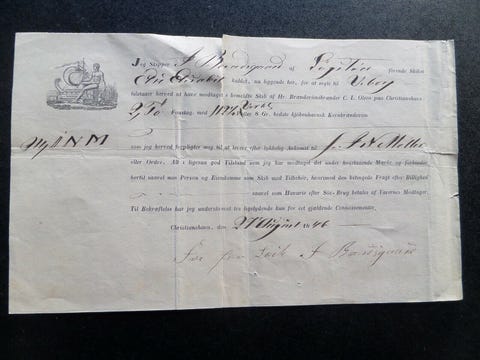 Jeg Skipper A Brodsgaard af førende Skibet
kaldet, nu liggende her, for at segle til Viborg
tilstaaer herved at have modtaget i bemeldte Skib af Hr. Brændeviinsbrænder C. L. Olsen paa Christianshavn:
2 Fustag. med 8 Gr. bedste kjøbenhavnsk Kornbrændeviin
N M
som jeg herved forpligter mig til at levere efter lykkelig Ankomst til J. A N Møller
eller Ordre, Alt i ligesaa god Tilstand som jeg har modtaget det under hosstaaende Mærke, og forbinder
hertil saavel min Person og Eiendomme som Skib med Tilbehør, hvorimod den betingede Fragt efter Billighed
saavel som Havarie efter Søe-Brug betales af Varernes Modtager.
Til Bekræftelse har jeg understempet tre ligelydende kun for eet gjældende Connossementer.
Christianshavn, den 27 August 1846
A Brodsgaard